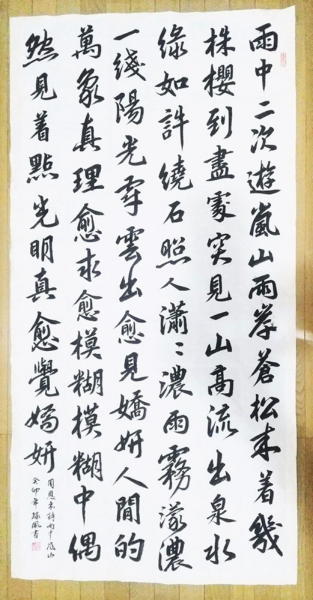 雨中二次遊嵐山兩岸蒼松夾着幾
株櫻到盡處突見一山高流出泉水
綠如許繞石照人瀟〻濃雨霧濛濃
一綫陽光穿雲出愈見嬌妍人間的
萬象真理愈求愈模糊模糊中偶
然見着點光明真愈覺嬌妍
周恩来詩雨中嵐山
癸卯年